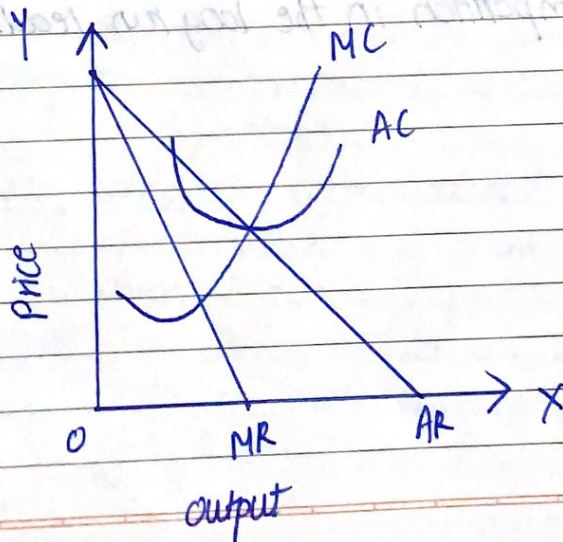 Y
MC
AC
Price
O
MR
AR
X
output